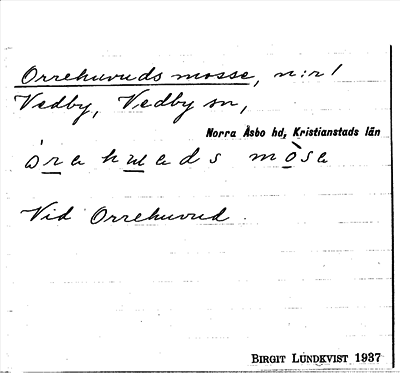 Orrehuvuds mosse, n:r 1
Vedby, Vedby sn,
Norra Åsbo hd, Kristianstads län
òra hwads mòsa
Vid Orrehuvud.
BIRGIT LUNDKVIST 1937